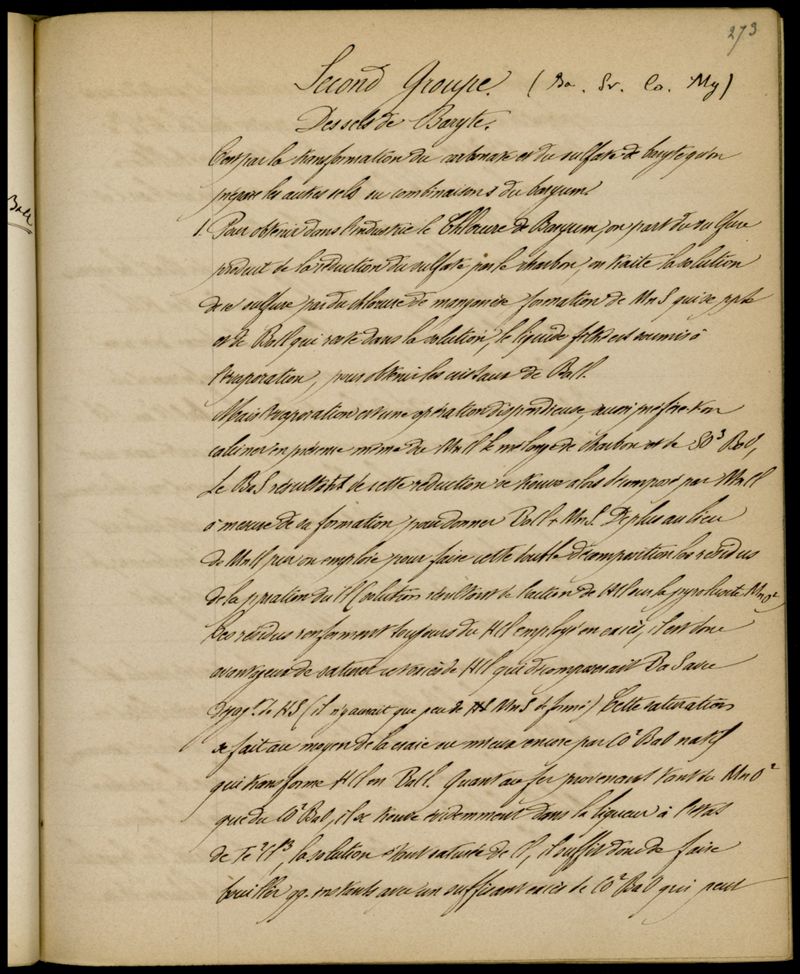 273
Second Groupe. (Ba. Sr. Ca. Mg)
Des sels de Baryte.
C'est par la transformation du carbonate et du sulfate de baryte qu'on
prépare les autres sels ou combinaisons du baryum
BaCl
1. Pour obtenir dans l'industrie le Chlorure de Baryum, on part du sulfure
produit de la réduction du sulfate par le charbon, on traite la solution
de ce sulfure par du chlorure de manganèse formation de MnS qui se ppte
et de BaCl qui reste dans la solution, le liquide filtré est soumis à
l'évaporation, pour obtenir les cristaux de BaCl.
Mais l'évaporation est une opération dispendieuse, aussi préfère t'on
calciner en présence même de MnCl le mélange de charbon et de SO³ BaO,
Le BaS résultant de cette réduction se trouve alors décomposé par MnCl
à mesure de sa formation pour donner BaCl + MnS. De plus au lieu
de MnCl pur on emploie pour faire cette double décomposition les résidus
de la pparation du Cl (solution résultant de l'action de HCl sur la pyrolusite MnO²
Ces résidus renferment toujours du HCl employé en excès, il est donc
avantageux de saturer cet excès de HCl qui décomposerait BaS avec
dégagt. de HS (il n'y aurait que peu de MnS de formé) Cette saturation
se fait au moyen de la craie ou mieux encore par CO² BaO natif
qui transforme HCl en BaCl. Quant au fer provenant tant du MnO²
que du CO² BaO, il se trouve évidemment dans la liqueur à l'état
de Fe²Cl³, la solution étant saturée de Cl, il suffit donc de faire
bouillir qq. instants avec un suffisant excès de CO² BaO qui peut